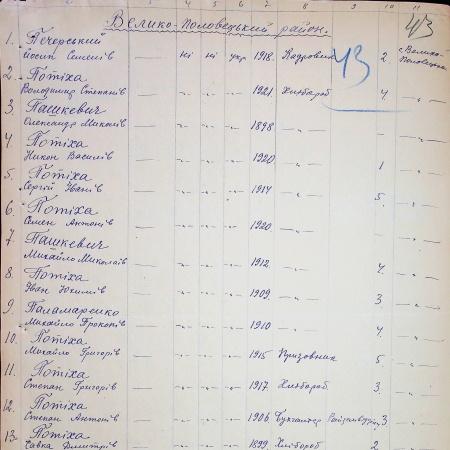 Велико-Половецький район.
43
43
1. Печерський
Йосип Семенів — ні ні укр 1918. Кадровик 2 с. Велико-Половецьке
2. Потіха
Володимир Степанів — -„- -„- -„- 1921. Хлібороб 4. -„-
3. Пашкевич
Олександр Миколаїв — -„- -„- -„- 1898 -„- — -„-
4. Потіха
Никон Василів — -„- -„- -„- 1920 -„- 1 -„-
5. Потіха
Сергій Іванів — -„- -„- -„- 1914 -„- 5. -„-
6. Потіха
Семен Антонів — -„- -„- -„- 1920 -„- — -„-
7. Пашкевич
Михайло Миколаїв — -„- -„- -„- 1912. -„- 4. -„-
8. Потіха
Яван Юхимів — -„- -„- -„- 1909. -„- 3 -„-
9. Паламаренко
Михайло Прокопів — -„- -„- -„- 1910 -„- 4. -„-
10. Потіха
Михайло Григорів — -„- -„- -„- 1915 Призовник 5. -„-
11. Потіха
Степан Григорів — -„- -„- -„- 1917. Хлібороб 3. -„-
12. Потіха
Степан Антонів — -„- -„- -„- 1906 Бухгалтер 3 -„-
13. Потіха
Савка Дмитрів — -„- -„- -„- 1899 Хлібороб 2 -„-